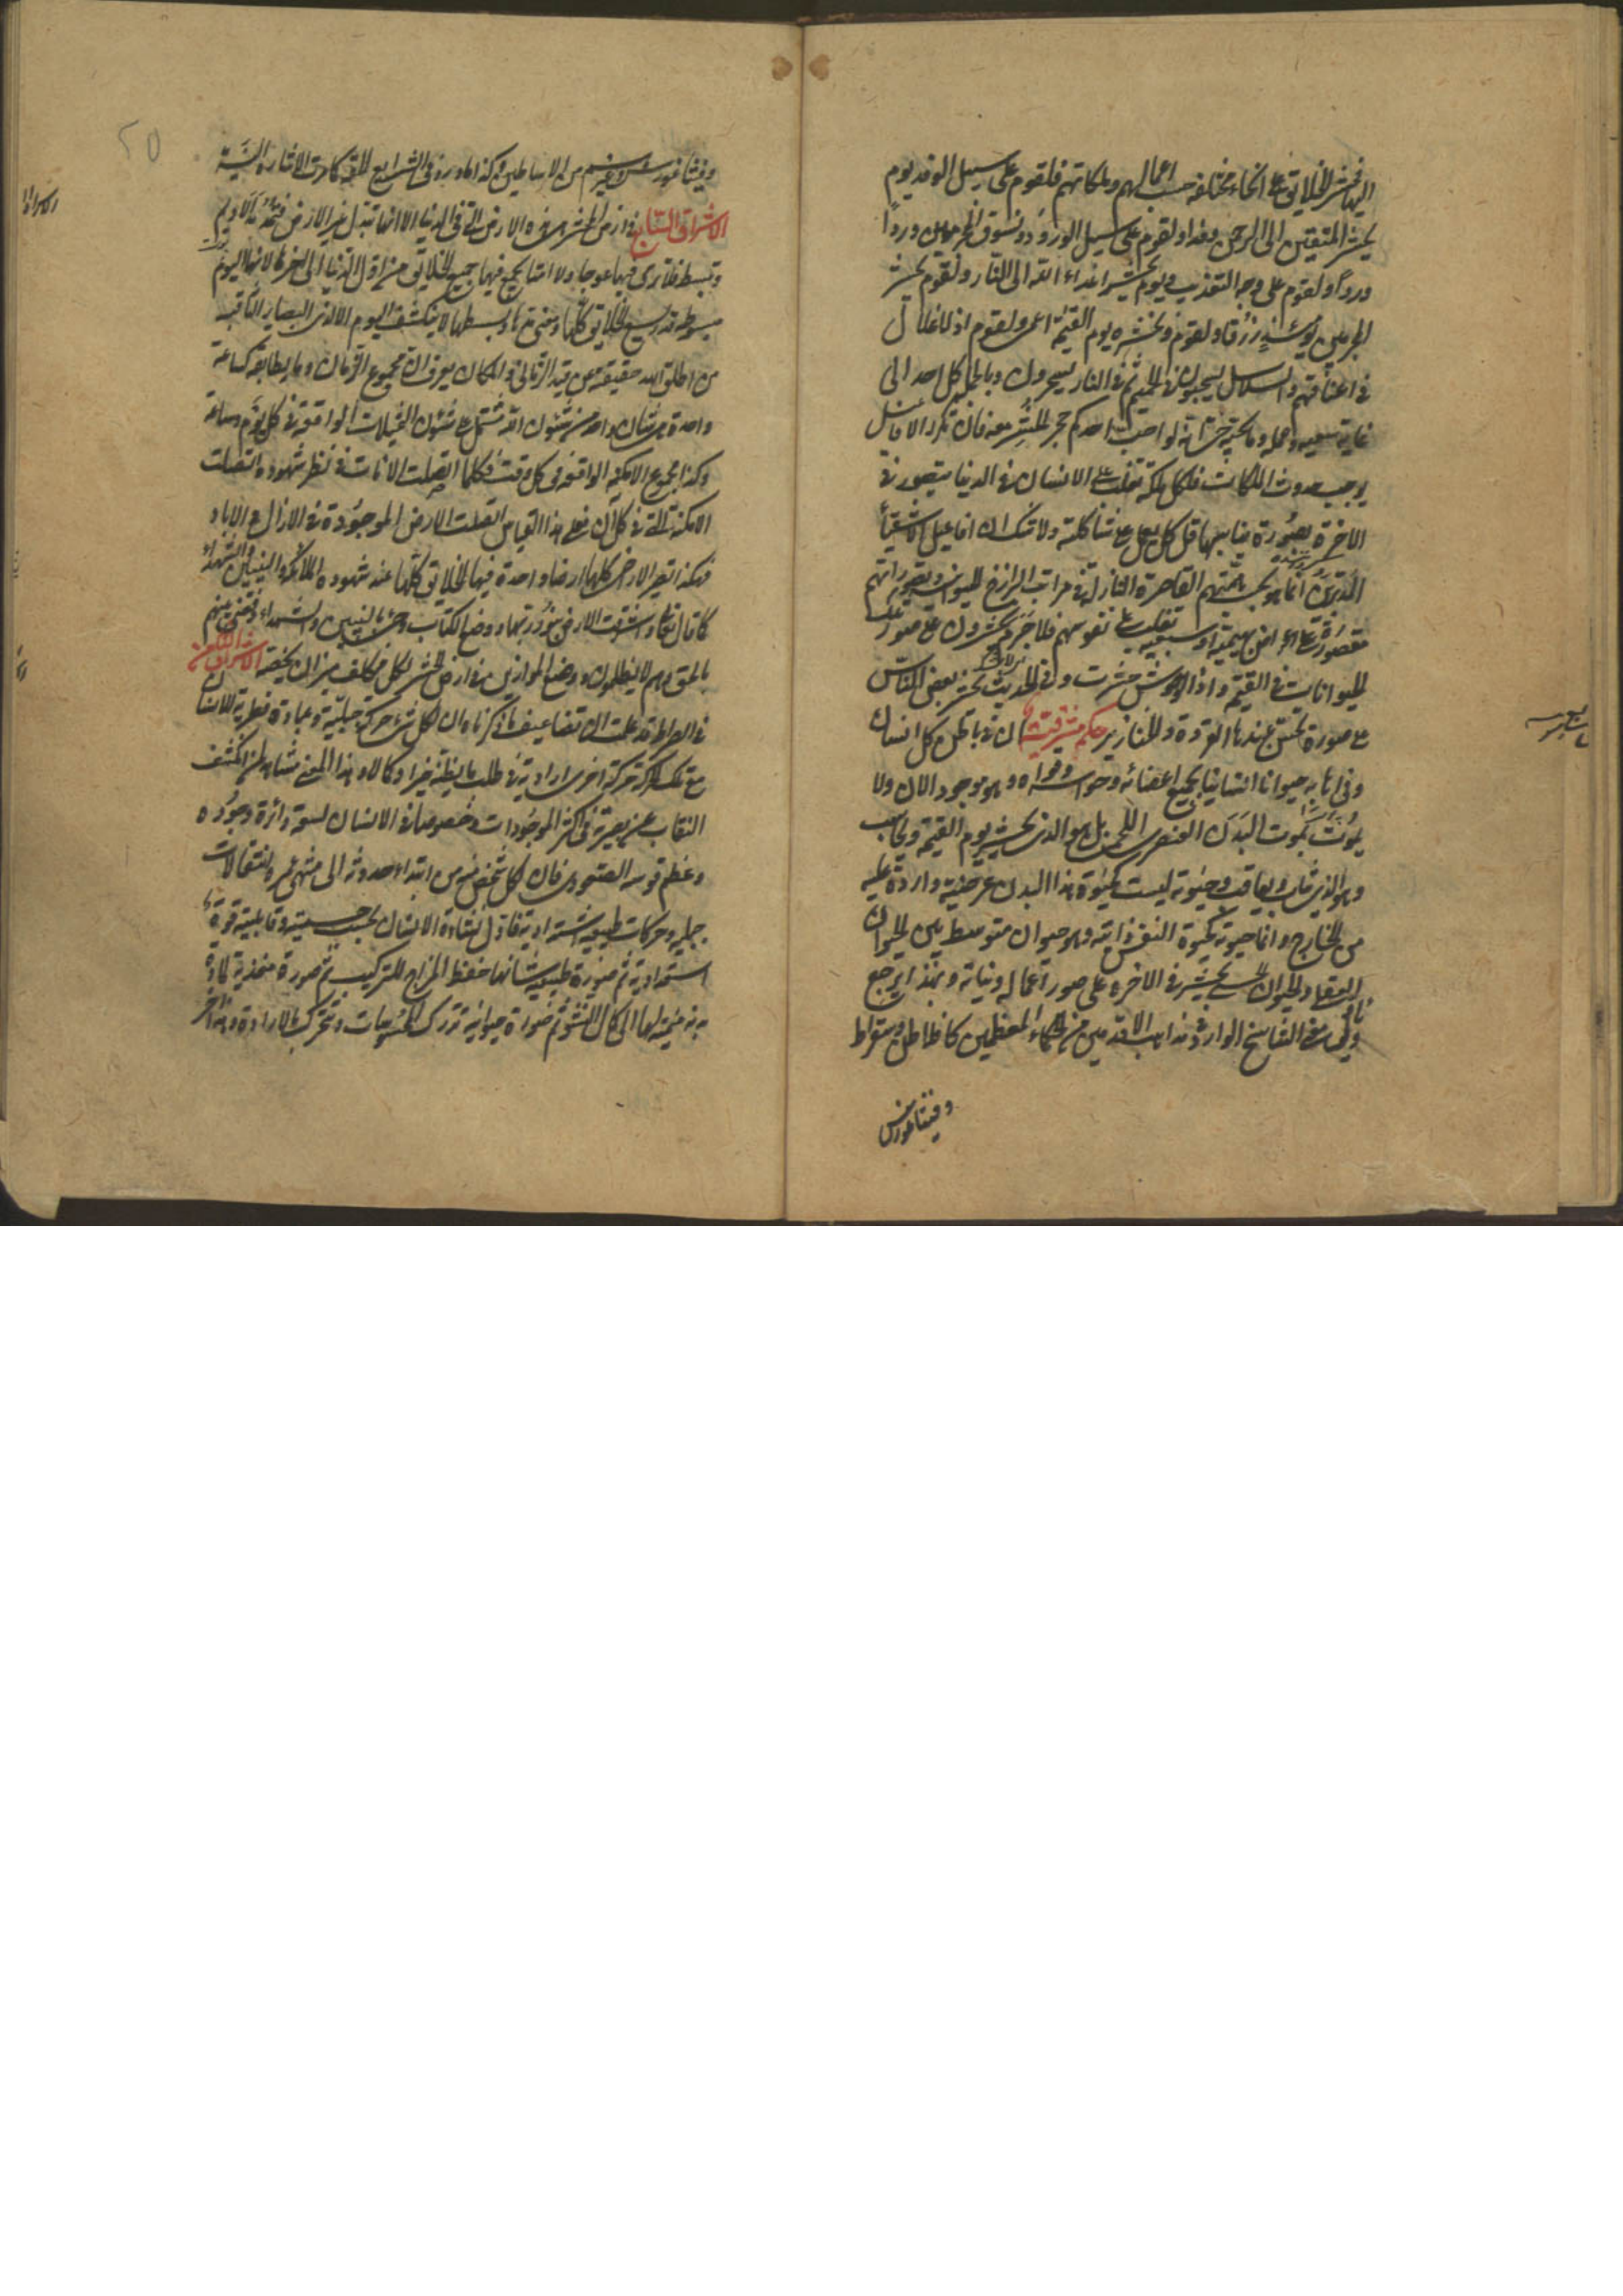 اليها فحشر الخلائق على انحاء مختلفة حسب اعمالهم وملكاتهم فلقوم على سبيل الوفد يوم
يحشر المتقين الى الرحمن وفدا ولقوم على سبيل الورود ونسوق المجرمين وردا
وردا ولقوم على وجه التعذيب ويوم يحشر اعداء الله الى النار ولقوم نحشر
المجرمين يومئذ زرقا ولقوم ونحشره يوم القيمة اعمى ولقوم اذ الاغلال
في اعناقهم والسلاسل يسحبون في الحميم ثم في النار يسجرون وبالجملة كل احد الى
غاية سعيه وعمله وما يحبه حتى انه لو احب احدكم حجر لحشر معه فان تكرر الافاعيل
يوجب حدوث الملكات فكل ملكة تغلب على الانسان في الدنيا يتصور في
الاخرة بصورة يناسبها قل كل يعمل على شاكلته ولا شك ان افاعيل الاشقياء
المدبرين انما هو بحسب همتهم القاصرة النازلة في مراتب البرازخ الحيوانية وتصوراتهم
مقصورة على اغراض بهيمية او سبعية تغلب على نفوسهم فلا جرم يحشرون على صور تلك
الحيوانات في القيمة واذا الوحوش حشرت وفي الحديث يحشر بعض الناس
على صورة يحسن عندها القردة والخنازير حكمة مشرقية ان في باطن كل انسان
وفي اهابه حيوانا انسانيا بجميع اعضائه وحواسه وقواه وهو موجود الان ولا
يموت بموت البدن العنصري اللحمي بل هو الذي يحشر يوم القيمة ويحاسب
وهو الذي يثاب ويعاقب وحيوته ليست كحيوة هذا البدن عرضية واردة عليه
من الخارج وانما حيوته كحيوة النفس ذاتية وهو حيوان متوسط بين الحيوان
العقلي والحيوان الحسي يحشر في الاخرة على صور اعماله ونياته وبهذا يرجع
ويؤل معنى التناسخ الوارد في مذاهب الاقدمين من الحكماء المعظمين كافلاطن وسقراط
وفيثاغورس
وفيثاغورس وغيرهم من الاساطين وكذا ما ورد في الشرايع الحقة كما مرت الاشارة اليه
الاشراق السابع في ارض المحشر هي هذه الارض التي في الدنيا الا انها تبدل غير الارض فتمد مد الاديم
وتبسط فلا ترى فيها عوجا ولا امتا يجمع فيها جميع الخلائق من اول الدنيا الى اخرها لانها اليوم
مبسوطة قدر يسع الخلائق كلها ومعنى مدها وبسطها لا ينكشف اليوم الا لذي البصاير الثاقبة
من اطلق الله حقيقته عن قيد الزمان والمكان يعرف ان مجموع الزمان وما يطابقه كساعة
واحدة هي شان واحد من شئون الله مشتمل على شئون التجليات الواقعة في كل يوم وساعة
وكذا مجموع الامكنة الواقعة في كل وقت فكلما اتصلت الانات في نظر شهوده اتصلت
الامكنة التي في كل ان فعلى هذا القياس اتصلت الارض الموجودة في الازال مع الاباد
فهكذا تصير الارض كلها ارضا واحدة فيها الخلائق كلها عند شهود الملائكة والنبيين والشهداء
كما قال تعالى واشرقت الارض بنور ربها ووضع الكتاب وجئ بالنبيين والشهداء وقضي بينهم
بالحق وهم لا يظلمون ووضع الموازين في ارض المحشر لكل مكلف ميزان يخصه الاشراق الثامن
في الصراط قد علمت ان تضاعيف ما ذكرناه ان لكل شئ حركة جبلية وعبادة فطرية للانسان
مع تلك الحركة حركة اخرى ارادية في طلب ما يظنه خيرا وكمالا وهذا المعنى مشاهد لمن انكشف
النقاب عن بصيرته في اكثر الموجودات وخصوصا في الانسان لسعة دائرة وجوده
وعظم قوسه الصعودي فان لكل شخص منه من ابتداء حدوثه الى منتهى عمره انتقالات
جبلية وحركات طبيعية اشتدادية فاول نشاءة الانسان بحسب جسميته وقابليته قوة
استعدادية ثم صورة طبيعية شانها حفظ المزاج للتركيب ثم صورة مغذية للمادة
مزيدة منمية لها الى كمال النشو ثم صورة حيوانية تدرك المحسوسات وتتحرك بالارادة وهذا اخر